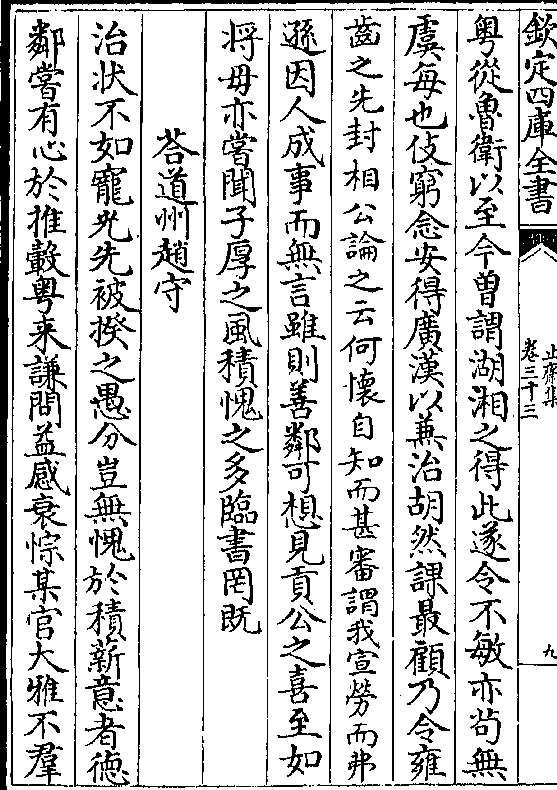 欽定四庫全書
止齋集
卷三十三
九
粵從魯衛以至今曽謂湖湘之得此遂令不敏亦茍無
虞每也伎窮念安得廣漢以兼治胡然課最顧乃令雍
齒之先封相公論之云何懐自知而甚審謂我宣勞而弗
遜因人成事而無言雖則善鄰可想見貢公之喜至如
将毋亦嘗聞子厚之風積愧之多臨書罔既
荅道州趙守
治狀不如寵光先被揆之愚分豈無愧於積薪意者徳
鄰嘗有心於推轂粤来謙問益感衷悰某官大雅不羣